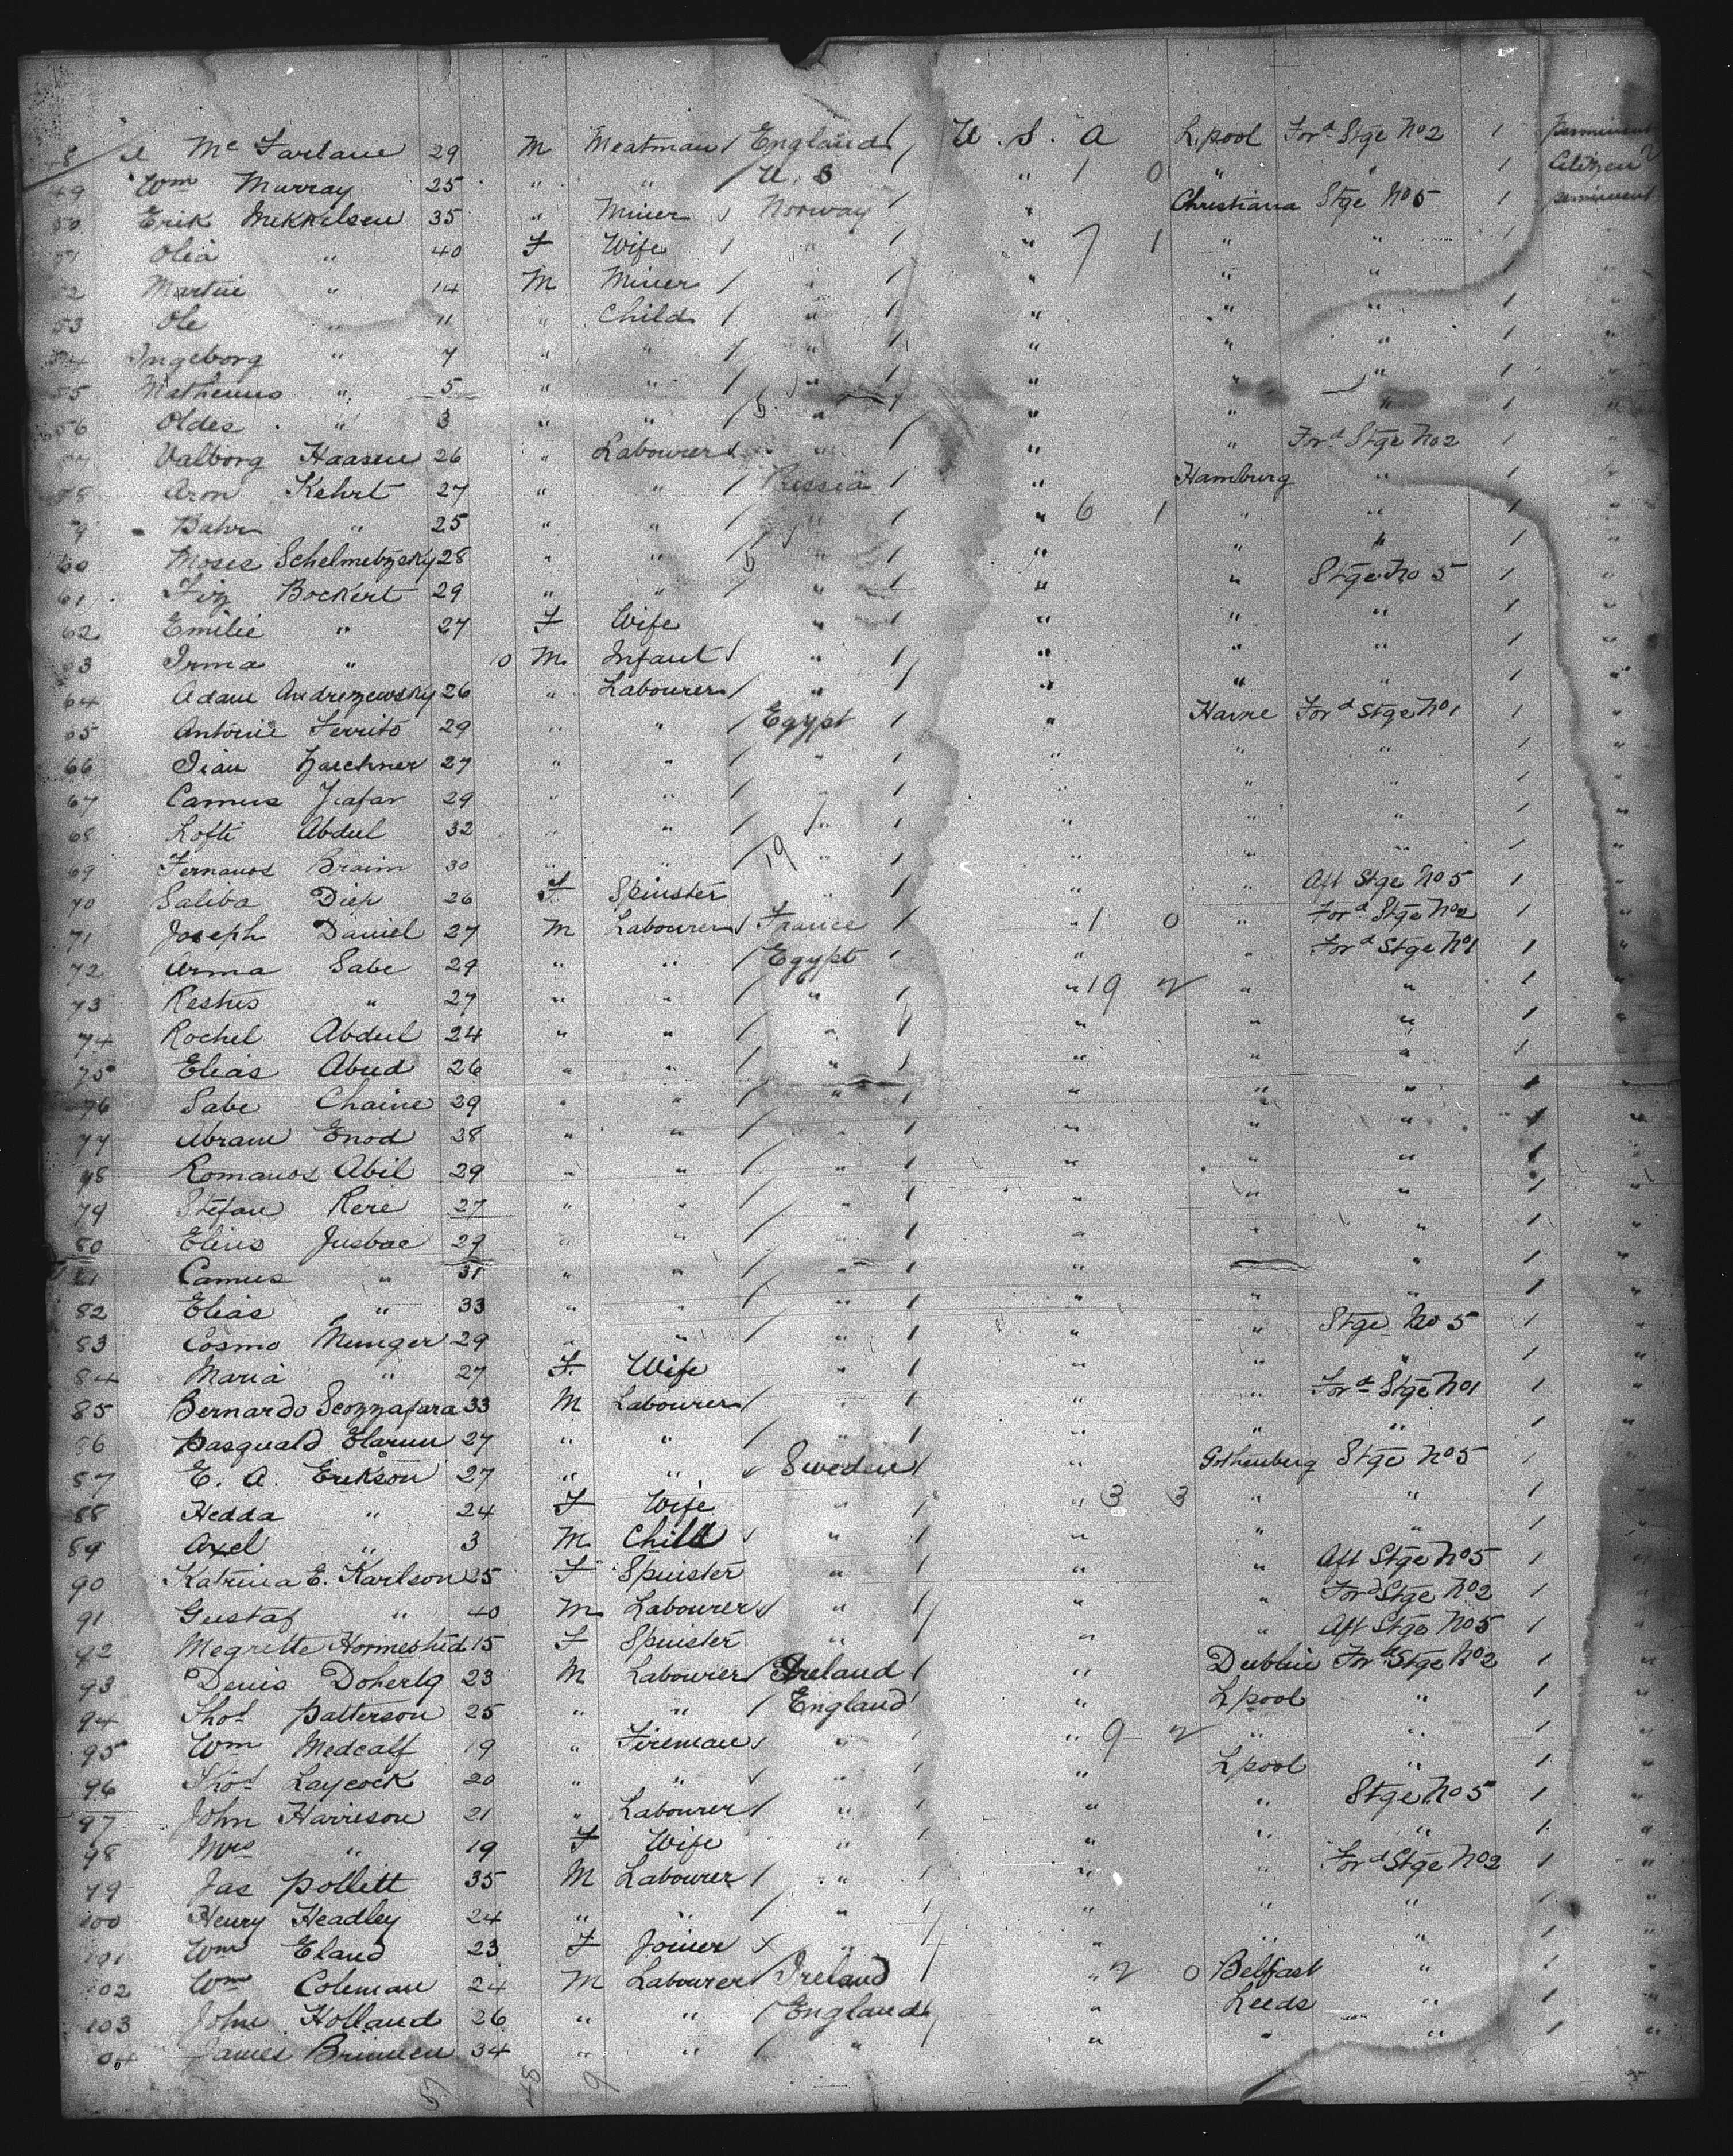 48 Mc Farlane 29 M Meatman England U. S. A L.pool Ford Stge No2 1 perminent
49 Wm Murray 25 " " U. S " 1 0 " " 1 Citizen
50 Erik Mikkilsen 35 " Miner Norway " Christiana Stge No5 1 perminent
51 Olia " 40 F Wife " " 7 1 " " 1 "
52 Martin " 14 M Miner " " " " 1 "
53 Ole " 11 " Child " " " " 1 "
54 Ingeborg " 7 " " " " " " 1 "
55 " 5 " " " " " " 1 "
56 Oldes " 3 " " " " " " 1 "
57 Valborg Haasen 26 " Labourer " " " Ford Stge No2 1 "
58 Aron Kehrt 27 " " Russia " Hamburg " 1 "
59 Bahr " 25 " " " " 6 1 " " 1 "
60 Moses Schelmetzsky 28 " " " " " " 1 "
61 Bockert 29 " " " " " Stge No 5 1 "
62 Emilie " 27 F Wife " " " " 1 "
63 Irma " 10 M Infant " " " " 1 "
64 Adam Andrezewsky 26 " Labourer " " " " 1 "
65 Antonie Ferrito 29 " " Egypt " Havre Ford Stge No1 1 "
66 27 " " " " " " 1 "
67 Camus Jiafar 29 " " " " " " 1 "
68 Lofti Abdul 32 " " " " " " 1 "
69 Fernanos Braim 30 " " 19 " " " " 1 "
70 Saliba Dieh 26 F Spinster " " " Aft Stge No 5 1 "
71 Joseph Daniel 27 M Labourer France " 1 0 " Ford Stge No2 1 "
72 Arma Sabe 29 " " Egypt " " Ford Stge No1 1 "
73 Restus " 27 " " " " 19 2 " " 1 "
74 Rochel Abdul 24 " " " " " " 1 "
75 Elias Abud 26 " " " " " " 1 "
76 Sabe Chaine 29 " " " " " " 1 "
77 Abram Enod 28 " " " " " " 1 "
78 Romanos Abil 29 " " " " " " 1 "
79 Stefan Rere 27 " " " " " " 1 "
80 Elius Jusbae 29 " " " " " " 1 "
81 Camus " 31 " " " " " " 1 "
82 Elias " 33 " " " " " " 1 "
83 Cosmo Munger 29 " " " " " Stge No 5 1 "
84 Maria " 27 F Wife " " " " 1 "
85 Bernardo Scozzafara 33 M Labourer " " " Ford Stge No1 1 "
86 Pasquald Elarun 27 " " " " " " 1 "
87 E. A. Erikson 27 " " Sweden " Gothenberg Stge No5 1 "
88 Hedda " 24 F Wife " " 3 3 " " 1 "
89 Axel " 3 M Child " " " " 1 "
90 Katrina E. Karlson 25 F Spinster " " " Aft Stge No5 1 "
91 Gustaf " 40 M Labourer " " " Ford Stge No2 1 "
92 Megrette Hormeshid 15 F Spinster " " " Aft Stge No5 1 "
93 Denis Doherty 23 M Labourer Ireland " Dublin Ford Stge No2 1 "
94 Thos Patterson 25 " " England " L pool " 1 "
95 Wm Medcalf 19 " Fireman " " 9 2 " " 1 "
96 Thos Laycock 20 " " " " L pool " 1 "
97 John Harrison 21 " Labourer " " " Stge No 5 1 "
98 Mrs " 19 F Wife " " " " 1 "
99 Jas Pollitt 35 M Labourer " " " Ford Stge No2 1 "
100 Henry Headley 24 " " " " " " 1 "
101 Wm Eland 23 F Joiner " " " " 1 "
102 Wm Coleman 24 M Labourer Ireland " 2 0 Belfast " 1 "
103 John Holland 26 " " England " Leeds " 1 "
04 James Brimlen 34 " " " " " " 1 "
48 9